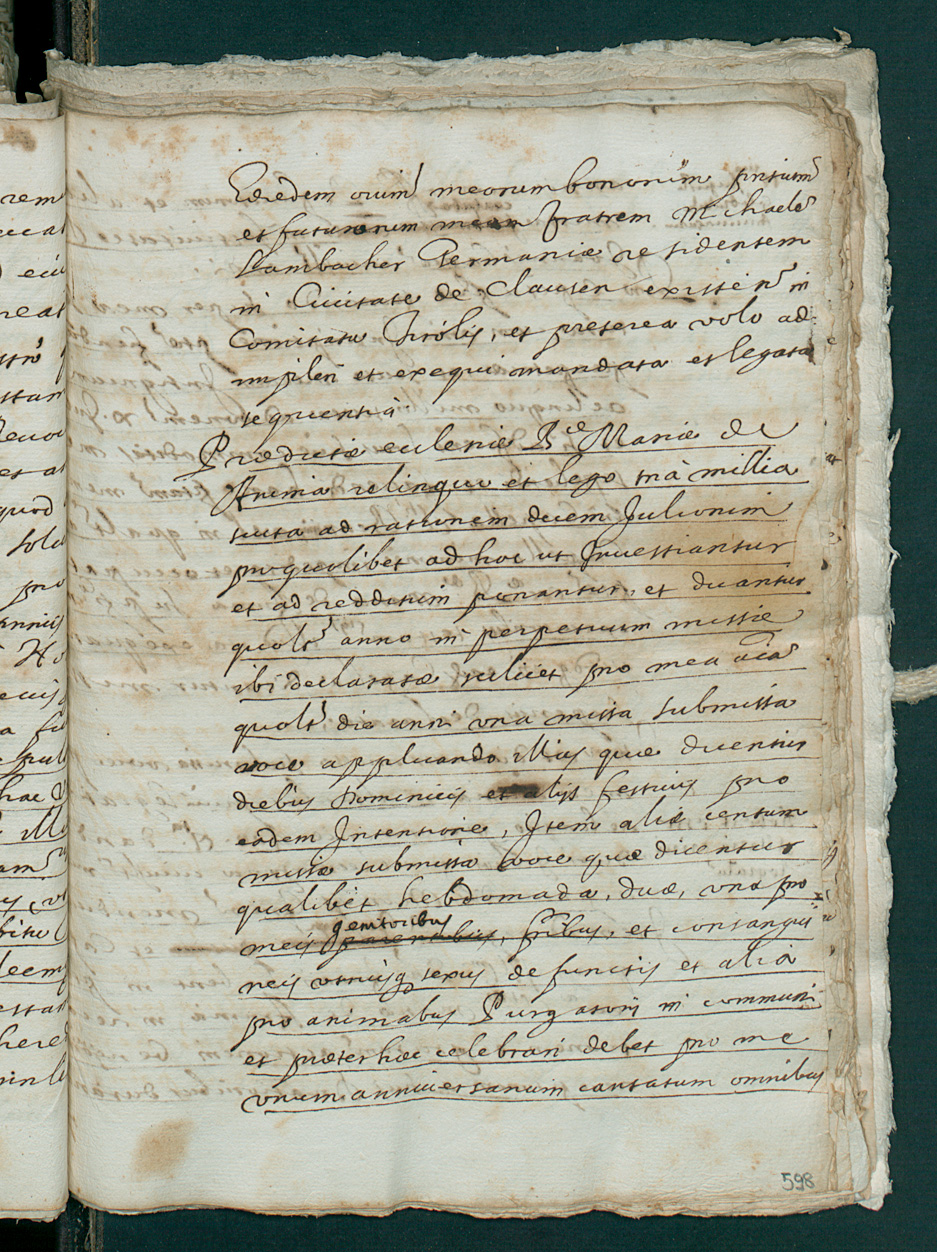 Eredem oium meorum bonorum pntium
et futurorum meum fratrem Michaele
Lambacher Germaniæ residentem
in Ciuitate de Clausen existen in
Comitatu Tirólis, et preterea volo ad
impleri et exequi mandata et legata
sequentia
Prædictæ eclesiæ Sce Mariæ de
Anima relinquo et lego tria millia
scuta ad rationem decem Juliorum
proquolibet ad hoc ut Inuestiantur
et ad redditum ponantur, et dicantur
quolt anno in perpetuum missæ
ibi declaratæ scilicet pro mea aia
quolt die anni vna missa submissa
voce applicando illius quæ dicentur
diebus Dominicis et alijs festiuis pro
eadem Intentione, Item aliæ centum
missæ submissa voce quæ dicentur
qualibet hebdomada, duæ, vna pro
meis genitoribus, fribus, et consangui
neis vtriusq sexus defunctis et alia
pro animabus Purgatorij in communi
et præter hæc celebrari debet pro me
vnum anniuersarium cantatum omnibus
598